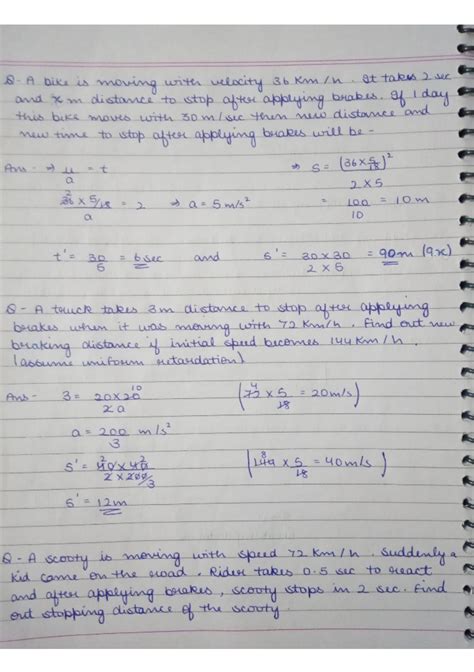 Q - A bike is moving with velocity 36 Km/h. It takes 2 sec
and x m distance to stop after applying brakes. If 1 day
this bike moves with 30 m/sec then new distance and
new time to stop after applying brakes will be -
Ans - ⇒ u/a = t ⇒ s = (36 × 5/18)² / 2 × 5
36 × 5/18 / a = 2 ⇒ a = 5 m/s² = 100/10 = 10 m
t' = 30/5 = 6 sec and s' = 30 × 30 / 2 × 5 = 90m (9x)
Q - A truck takes 3m distance to stop after applying
brakes when it was moving with 72 Km/h. Find out new
braking distance if initial speed becomes 144 Km/h.
(assume uniform retardation)
Ans - 3 = 20 × 20 / 2a (72 × 5/18 = 20 m/s)
a = 200/3 m/s²
s' = 40 × 40 / 2 × 200/3 (144 × 5/18 = 40 m/s)
s' = 12 m
Q - A scooty is moving with speed 72 Km/h. Suddenly a
kid came on the road. Rider takes 0.5 sec to react
and after applying brakes, scooty stops in 2 sec. Find
out stopping distance of the scooty.